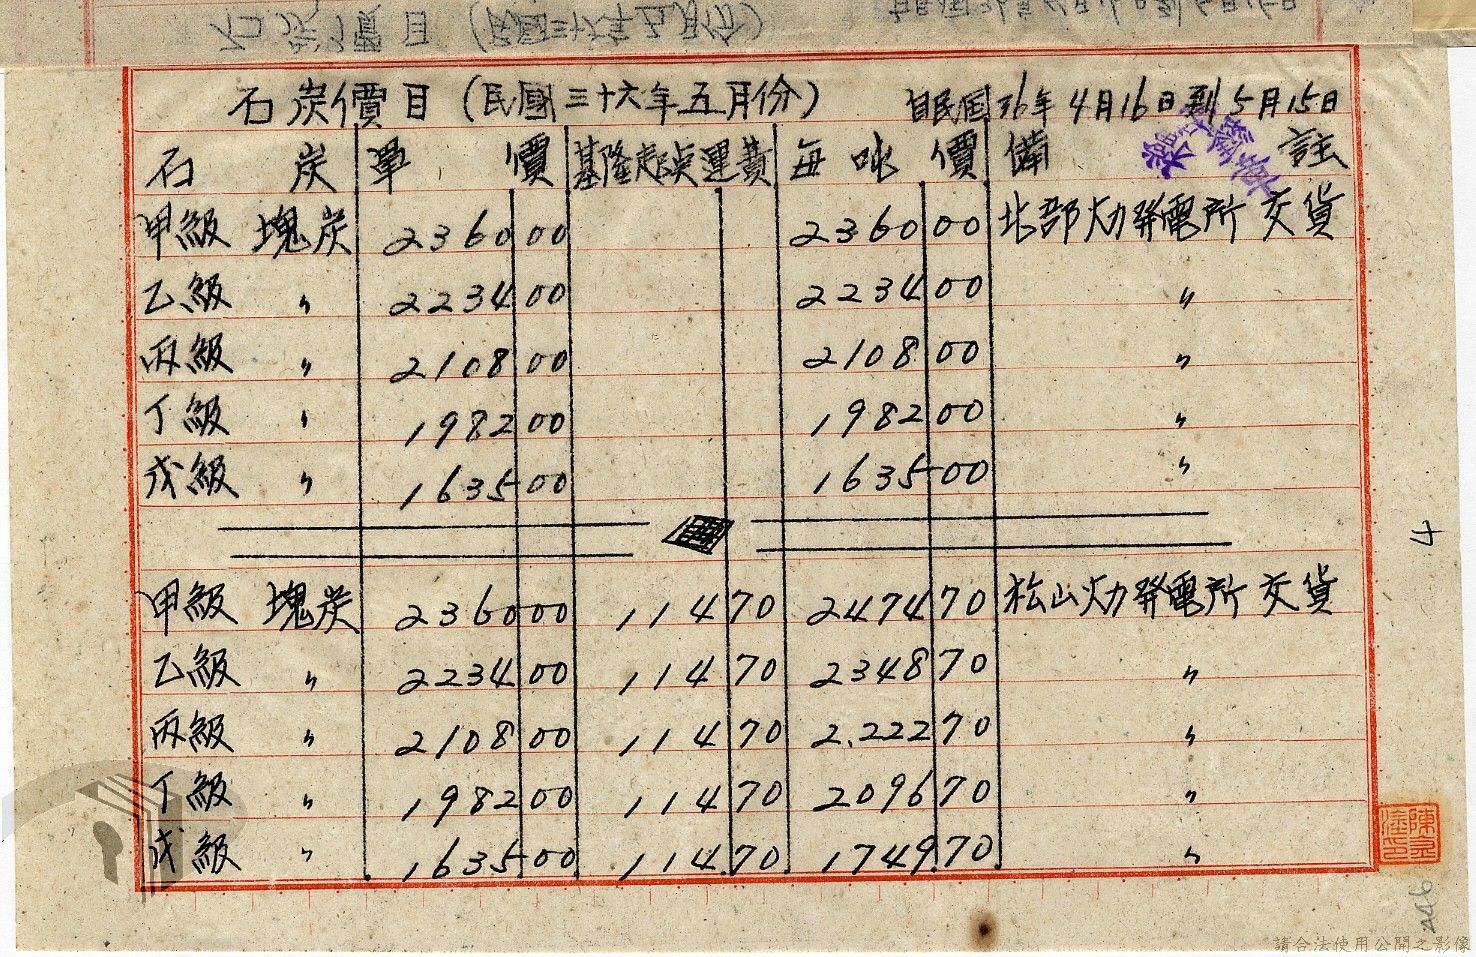 石炭價目(民國三十六年五月份) 自民國36年4月16日到5月15日
石炭 單價 基隆起点運費 每吨價 備註
甲級 塊炭 2360 00 2360 00 北部火力発電所 交貨
乙級 〃 2234 00 2234 00 〃
丙級 〃 2108 00 2108 00 〃
丁級 〃 1982 00 1982 00 〃
戊級 〃 1635 00 1635 00 〃
甲級 塊炭 2360 00 114 70 2474 70 松山火力発電所 交貨
乙級 〃 2234 00 114 70 2348 70 〃
丙級 〃 2108 00 114 70 2,222 70 〃
丁級 〃 1982 00 114 70 2096 70 〃
戊級 〃 1635 00 114 70 1749 70 〃
4
446
請合法使用公開之影像